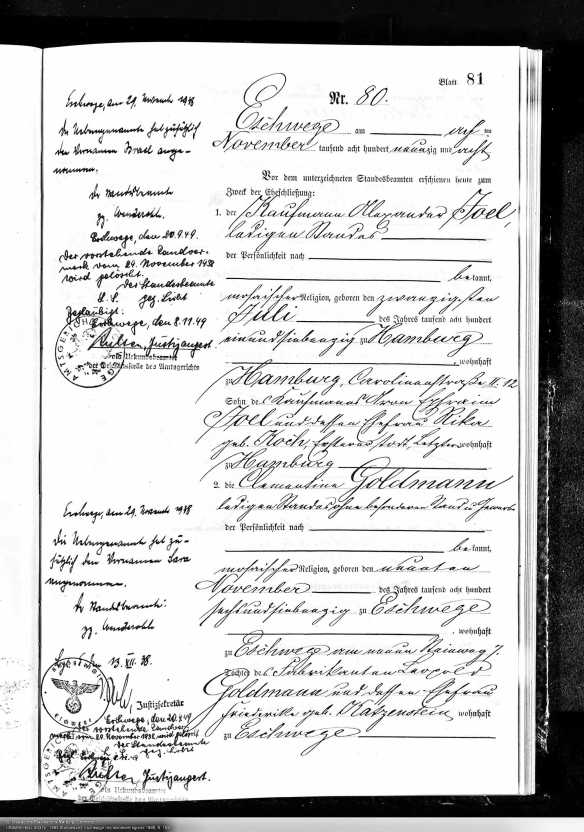 Blatt 81
Nr. 80.
Eschwege am acht ten
November tausend acht hundert neunzig und acht
Vor dem unterzeichneten Standesbeamten erschienen heute zum
Zweck der Eheschließung:
1. der Kaufmann Alexander Joel,
ledigen Standes
der Persönlichkeit nach
bekannt,
mosaischer Religion, geboren den zwanzigsten
Juli des Jahres tausend acht hundert
neunundsiebenzig zu Hamburg
, wohnhaft
zu Hamburg, Carolinenstraße N. 12
Sohn des Kaufmanns Aron Ephraim
Joel und dessen Ehefrau Rika
geb. Koch, Ersterer todt, Letztere wohnhaft
zu Hamburg
2. die Clementine Goldmann
ledigen Standes ohne besonderen Stand u Gewerbe
der Persönlichkeit nach
bekannt,
mosaischer Religion, geboren den neunten
November des Jahres tausend acht hundert
sechsundsiebenzig zu Eschwege
, wohnhaft
zu Eschwege am neuen Steinweg 7.
Tochter des Fabrikanten Leopold
Goldmann und dessen Ehefrau
Friederike geb. Katzenstein wohnhaft
zu Eschwege
Eschwege, am 29. November 1938
Der Nebengenannte hat zusätzlich
den Vornamen Israel ange-
nommen.
Der Standesbeamte
gz.
Eschwege, den 20.9.49.
Der vorstehende Randver-
merk vom 29. November 1938
wird gelöscht.
Der Standesbeamte
L. S. gez.
Beglaubigt:
Eschwege, den 8.11.49
Justizangest.
als Urkundsbeamter
der Geschäftsstelle des Amtsgerichts
Eschwege, am 29. November 1938
Die Nebengenannte hat zu-
sätzlich den Vornamen Sara
angenommen.
Der Standesbeamte:
gz.
13. XII. 38.
Justizsekretär
Eschwege, den 20.9.49
Der vorstehende Randver-
merk vom 29. November 1938 wird gelöscht
Der Standesbeamte
Justizangest.
als Urkundsbeamter
der Geschäftsstelle des Amtsgerichts